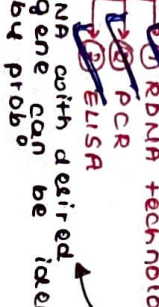 ① RDNA techno
② PCR
③ ELISA
NA with desired
gene can be ide
by prob